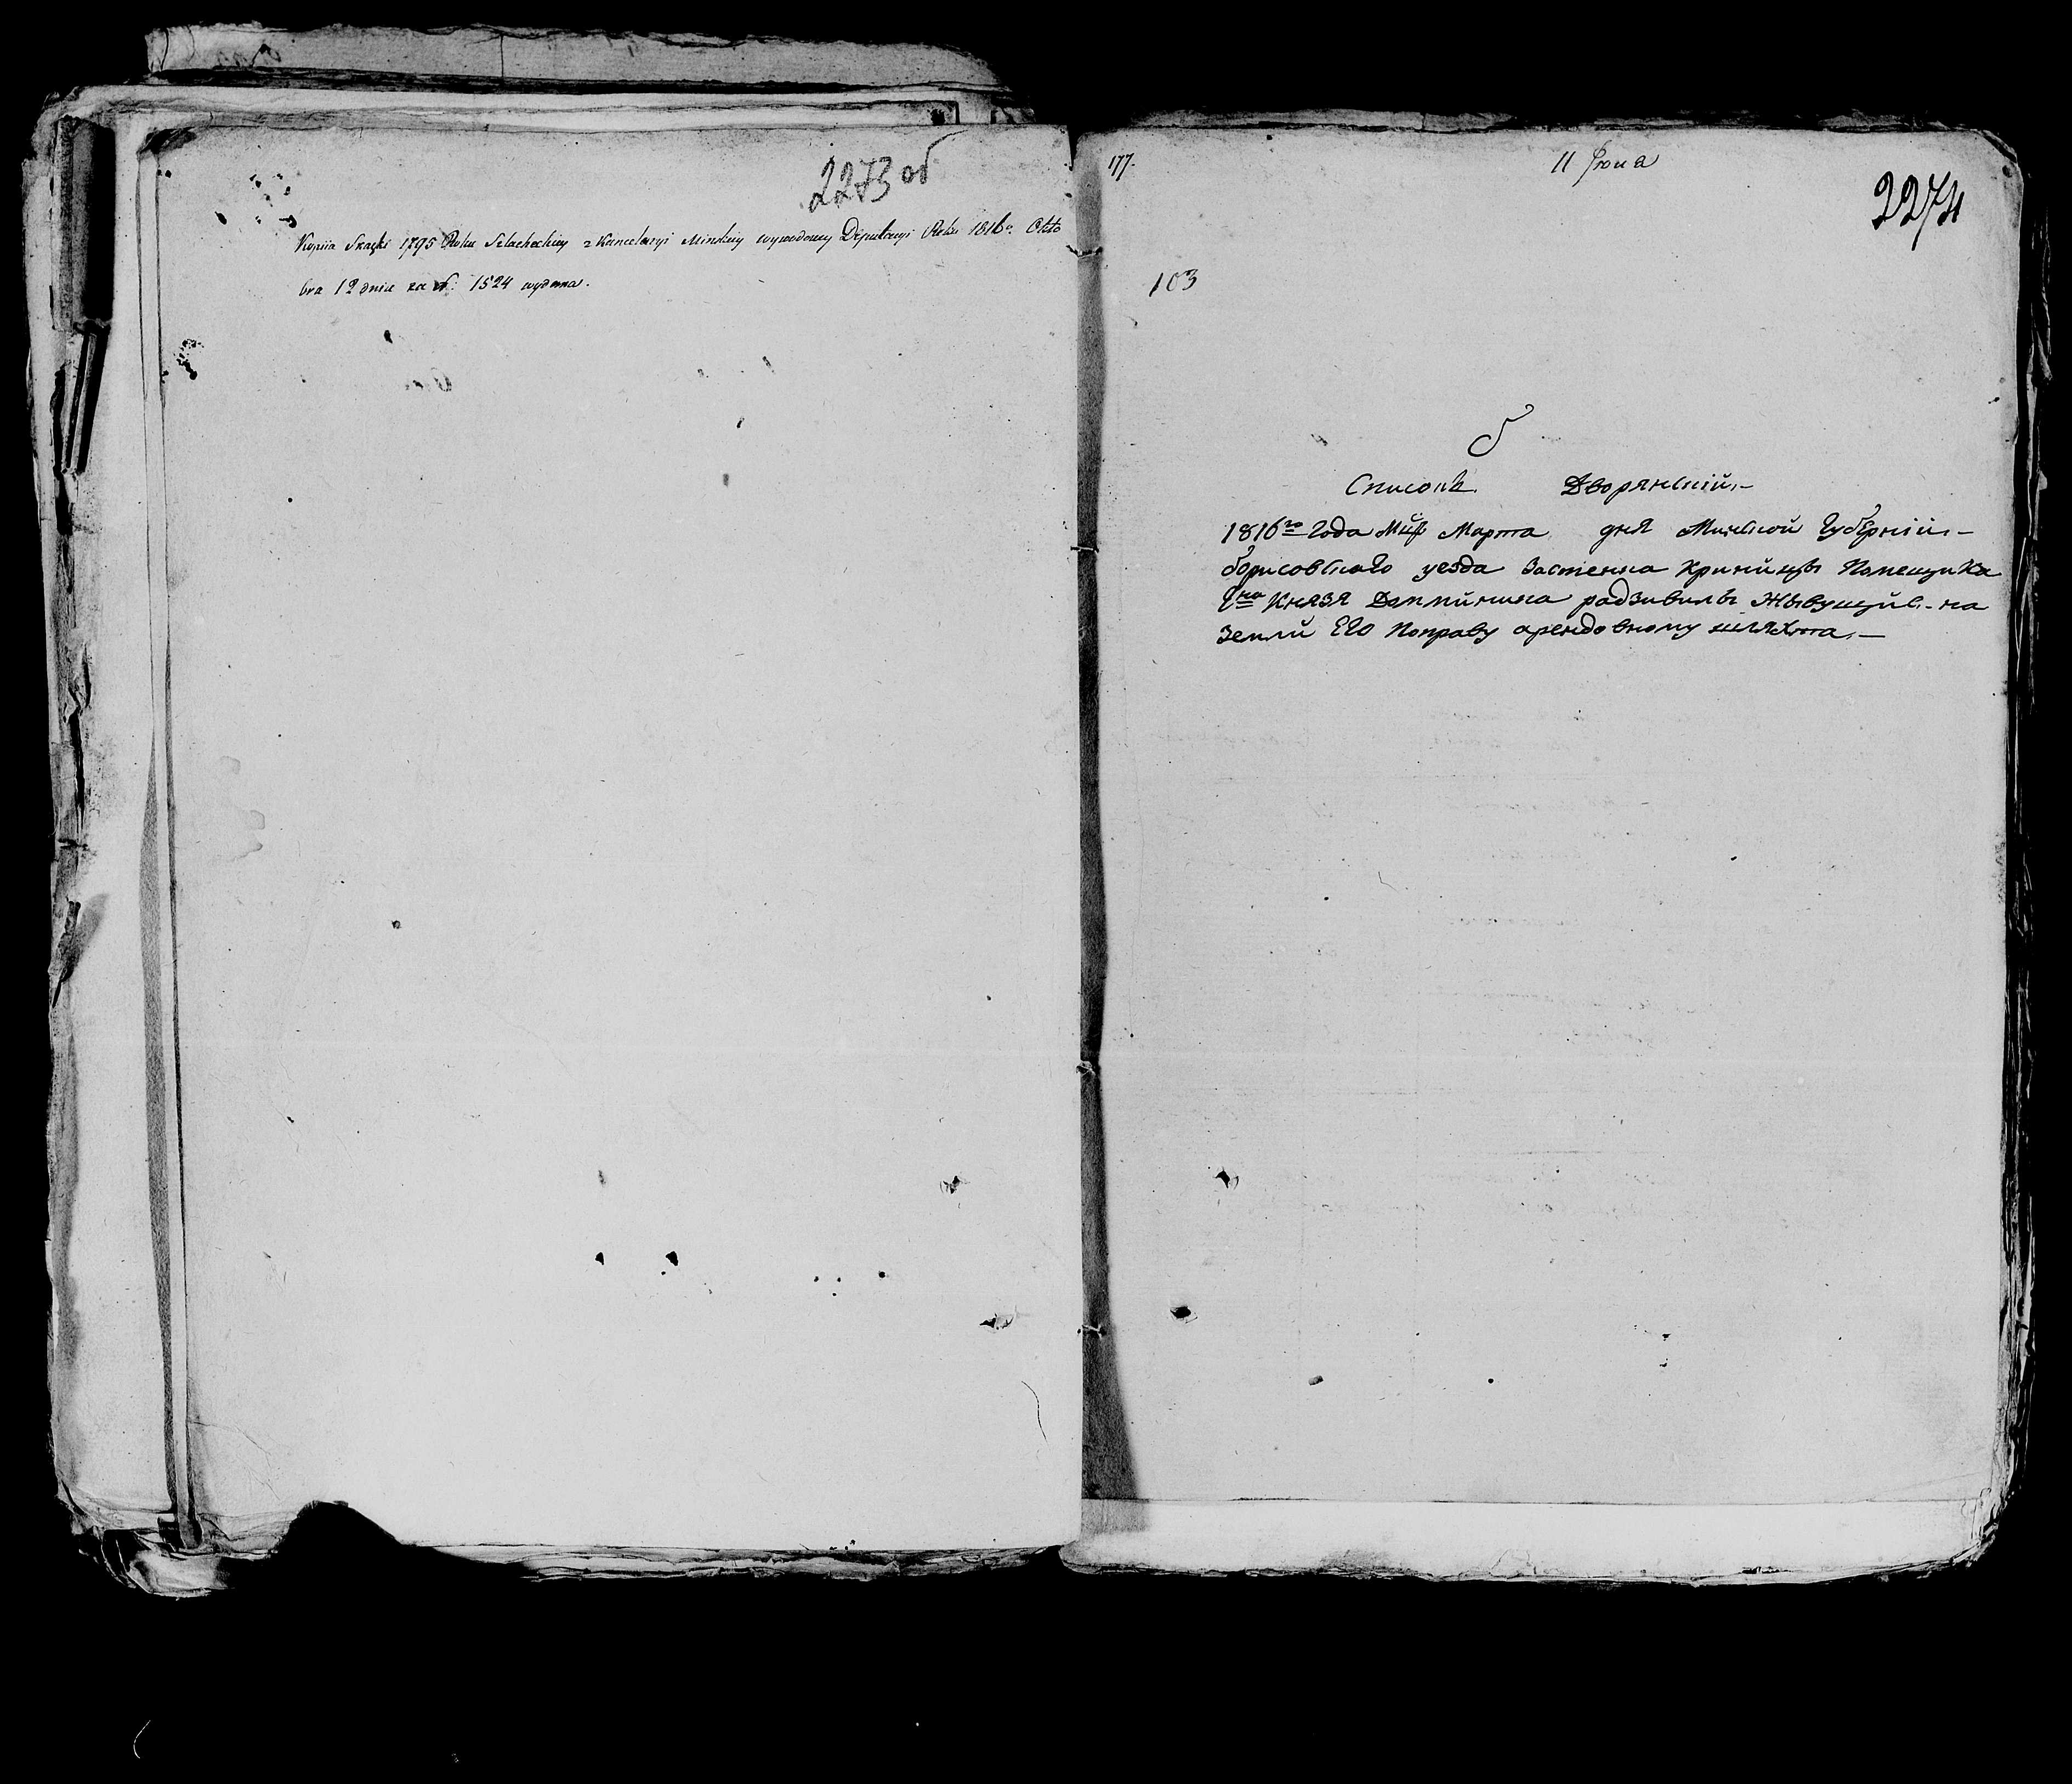 2273 об
Kopiia Skazki 1795 Roku Szlacheckiey z Kancelaryi Minskiey wywodowey Deputacyi Roku 1816o Okto
bra 12 dnia za N: 1524 wydana.
177.
11 Іюна
2274
103
Б
Списокъ Дворянскій.-
1816го Года Марта дня Минской Губерніи.-
Борисовскаго уезда Застенка Криницы Помещика
Князя Доминика радзивилы Жывущиїи.- на
Земли Его Поправу арендовному шляхта.-